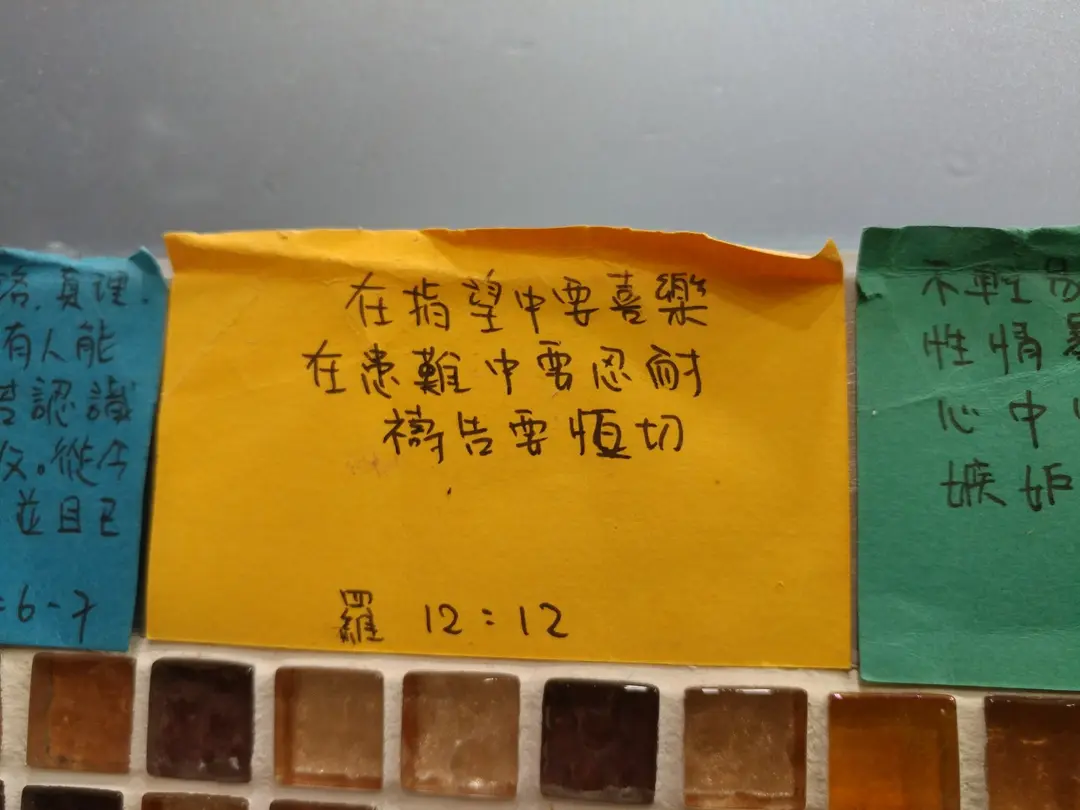 在指望中要喜樂
在患難中要忍耐
禱告要恆切
羅 12:12
路.真理.
有人能
認識
。從今
並且已
:6-7
不輕易
性情
心中
嫉妒